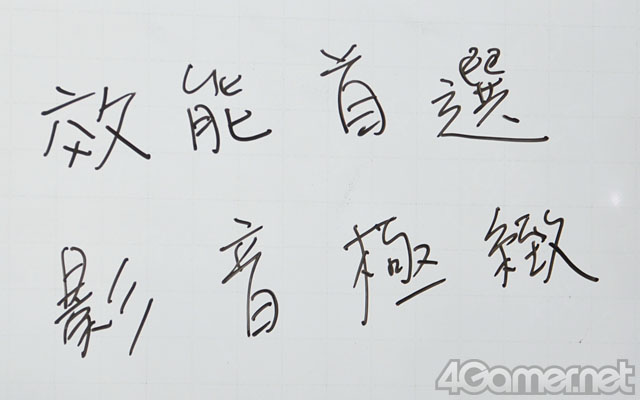 效能首選
影音極緻
4Gamer.net